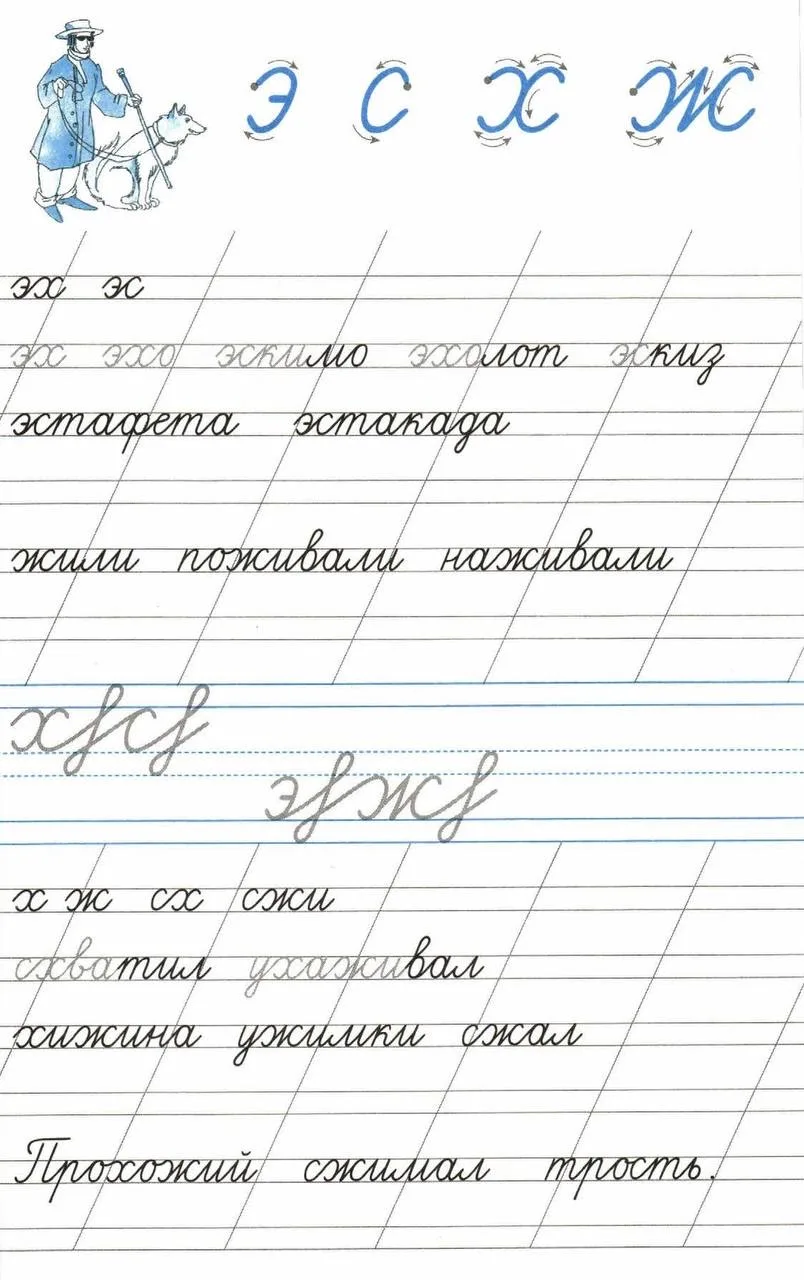 э с х ж
эх эс
эх эхо эскимо эхолот эскиз
эстафета эстакада
жили поживали наживали
х с
э ж
х ж сх сжи
схватил ухаживал
хижина ужимки сжал
Прохожий сжимал трость.